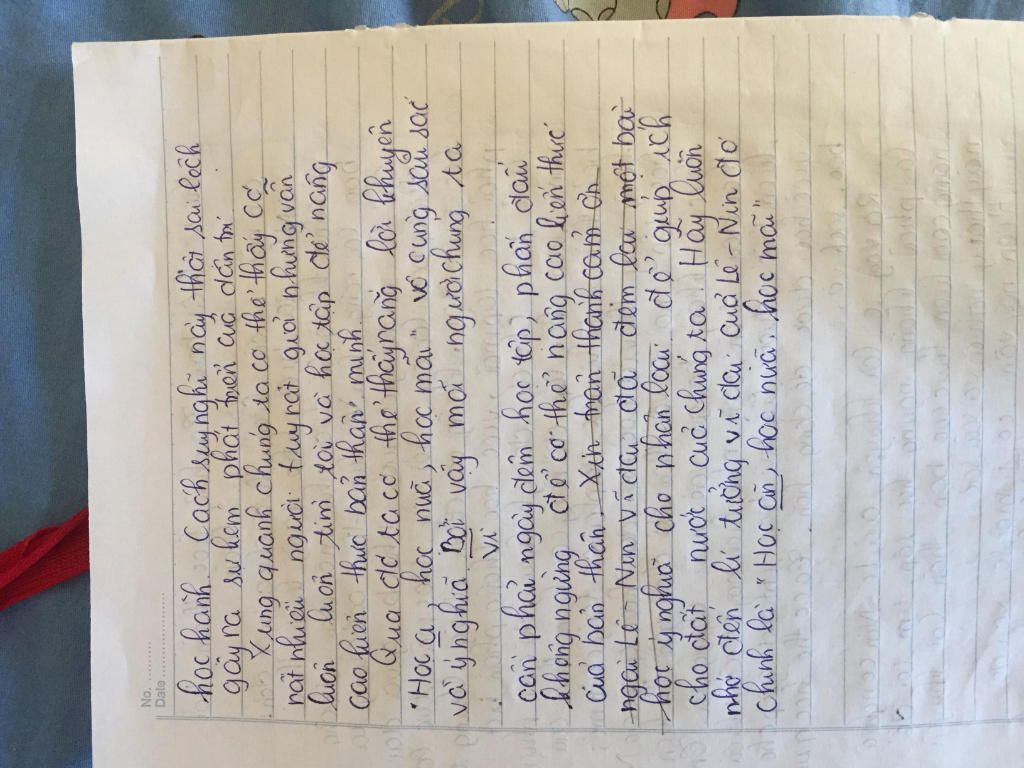 No. ............
Date ............
học hành. Cách suy nghĩ này thời sai lệch
gây ra sự kém phát triển của dân trí
Xung quanh chúng ta có thể thấy có
rất nhiều người. tuy rất giỏi nhưng vẫn
luôn luôn tìm tòi và học tập để nâng
cao kiến thức bản thân mình.
Qua đó ta có thể thấy rằng lời khuyên
"Học ,học nữa, học mãi" vô cùng sâu sắc
và ý nghĩa Đối vậy mỗi người chúng ta
Vì
cần phải ngày đêm học tập, phấn đấu
không ngừng để có thể nâng cao kiến thức
của bản thân. Xin trân thành cảm ơn
ngài Lê-Nin vĩ đại đã đem lại một bài
học ý nghĩa cho nhân loại để giúp ích
cho đất nước của chúng ta. Hãy luôn
nhớ đến lí tưởng vĩ đại của Lê-Nin đó
chính là "Học , học nữa, học mãi"